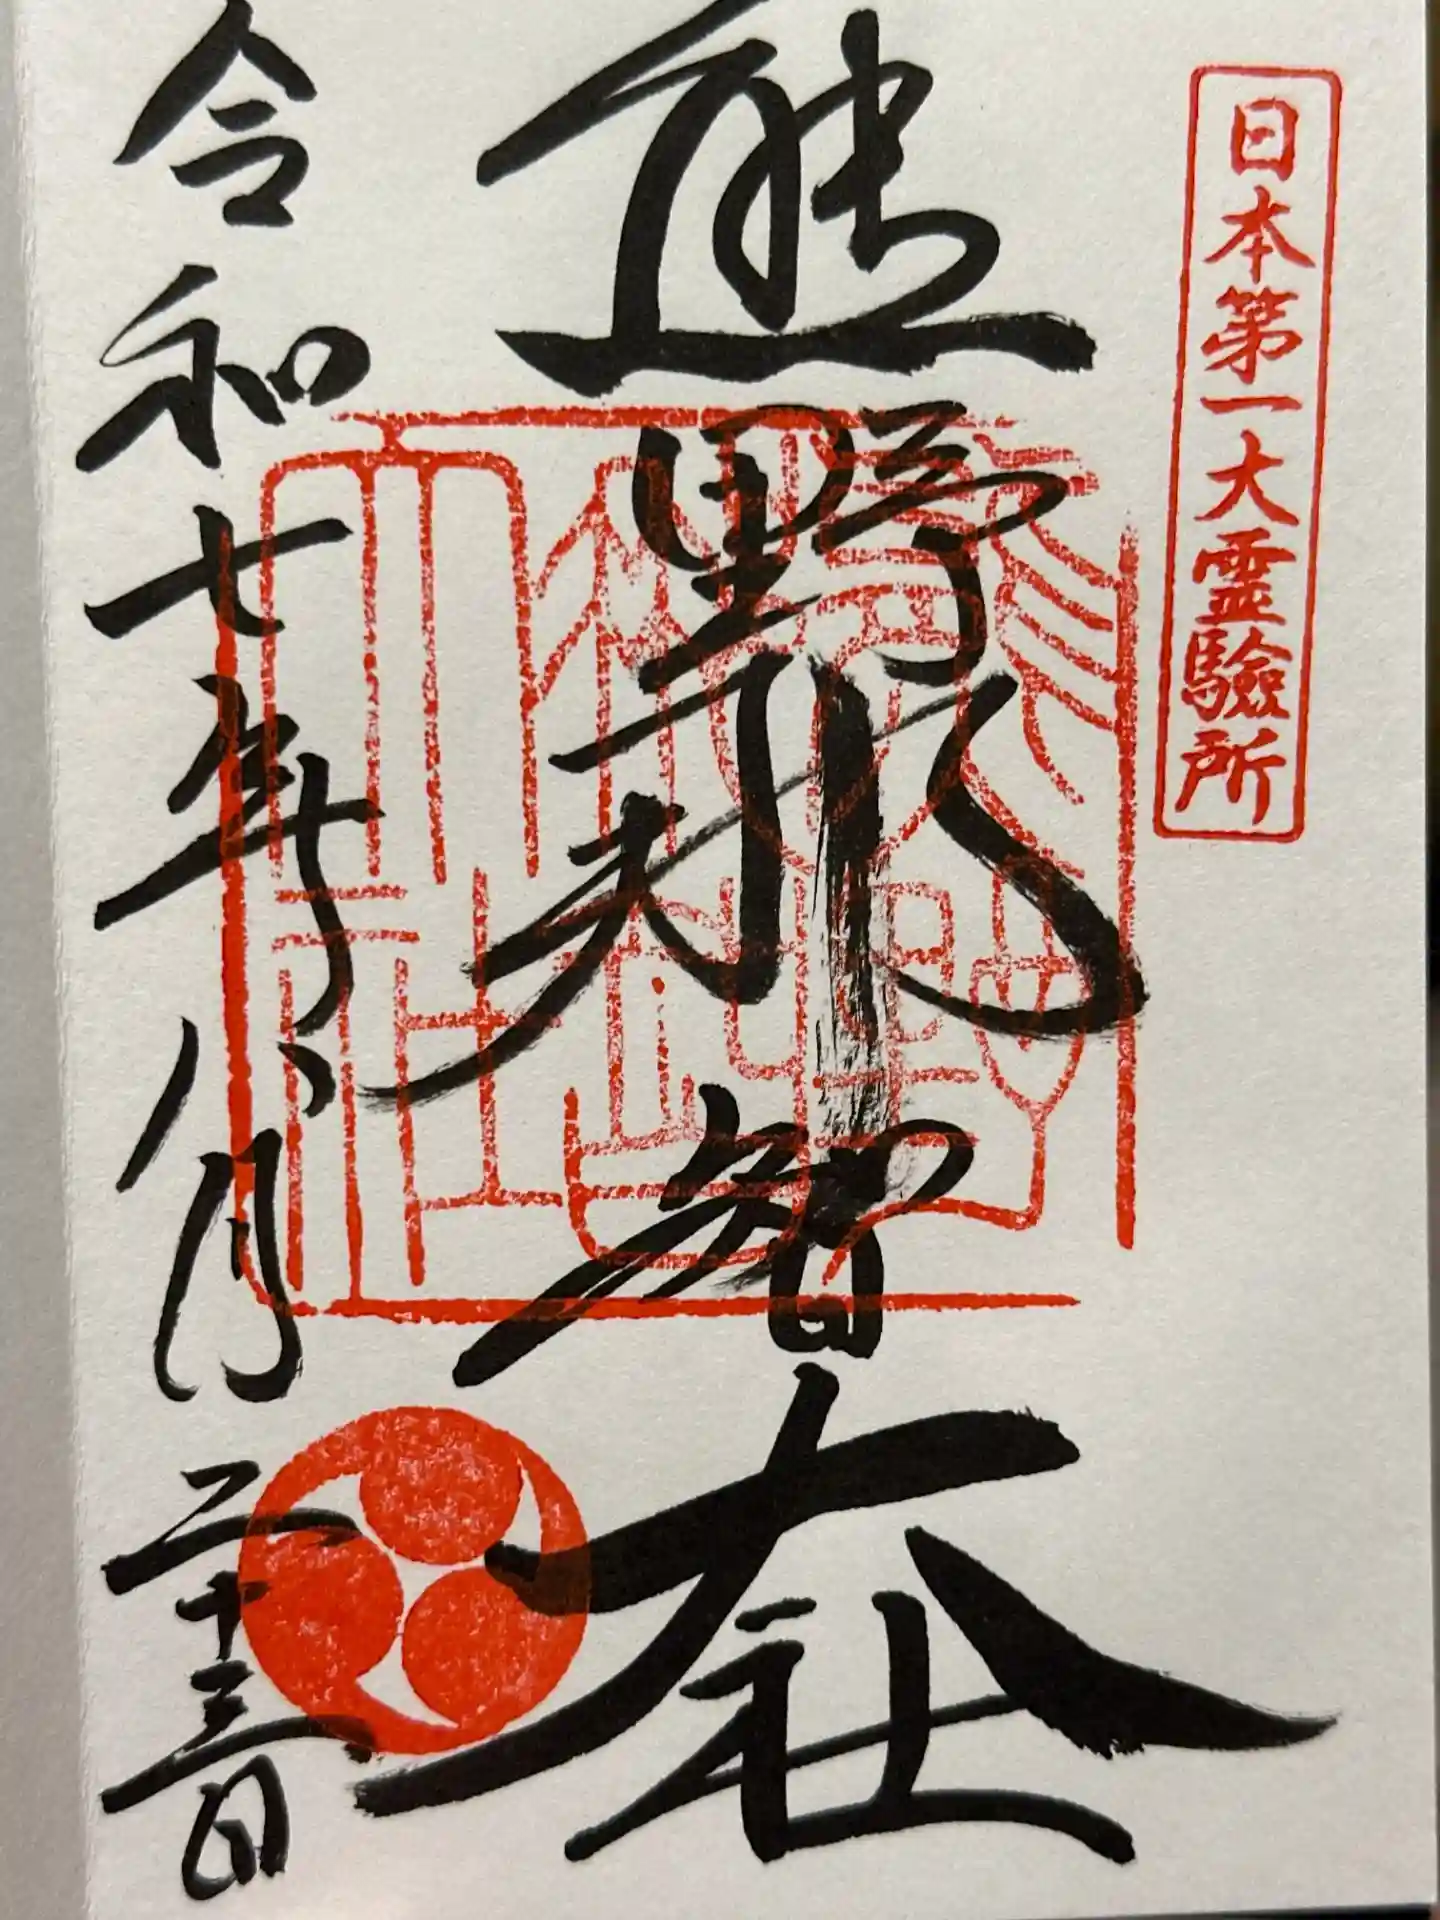 日本第一大霊驗所
熊野那智大社
令和七年八月二十三日